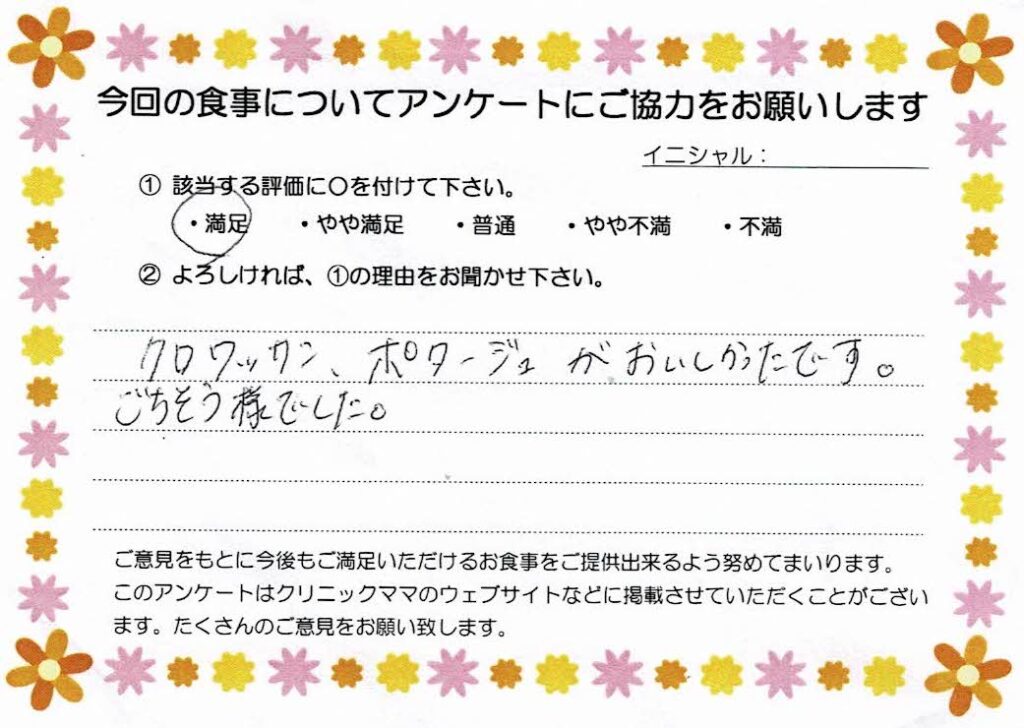 今回の食事についてアンケートにご協力をお願いします
イニシャル：
① 該当する評価に〇を付けて下さい。
・満足 ・やや満足 ・普通 ・やや不満 ・不満
② よろしければ、①の理由をお聞かせ下さい。
クロワッサン、ポタージュがおいしかったです。
ごちそう様でした。
ご意見をもとに今後もご満足いただけるお食事をご提供出来るよう努めてまいります。
このアンケートはクリニックママのウェブサイトなどに掲載させていただくことがござい
ます。たくさんのご意見をお願い致します。